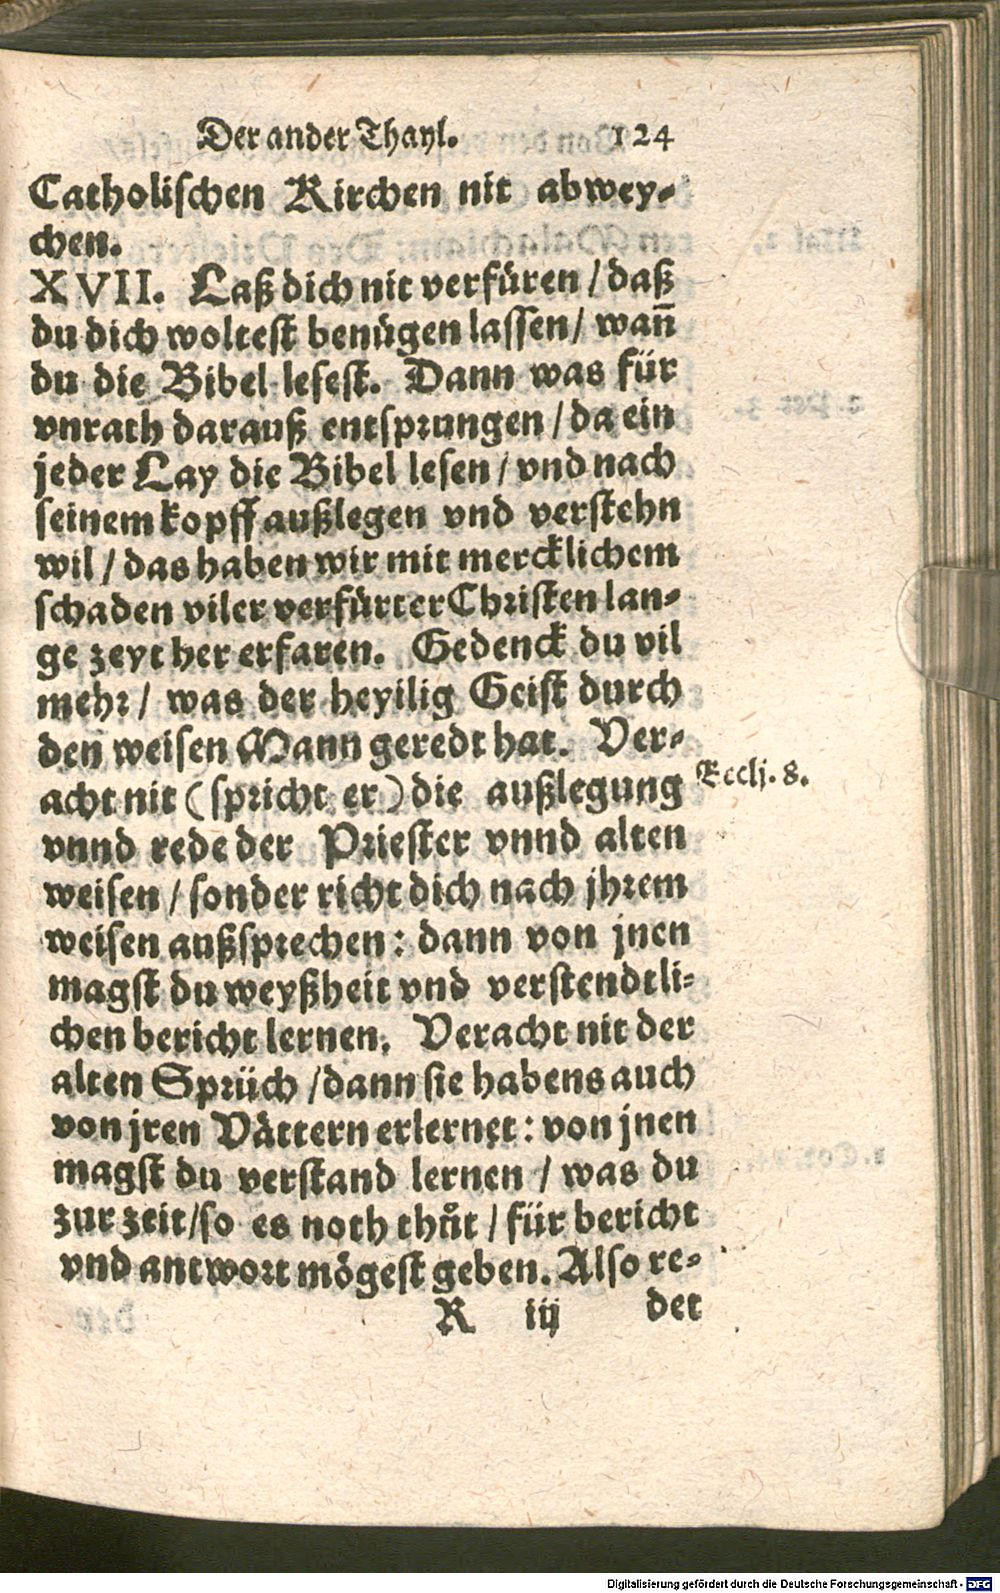 Der ander Thayl. 124
Catholischen Kirchen nit abwey-
chen.
XVII. Laß dich nit verfüren / daß
du dich woltest benügen lassen / wan̄
du die Bibel lesest. Dann was für
vnrath darauß entsprungen / da ein
jeder Lay die Bibel lesen / vnd nach
seinem kopff außlegen vnd verstehn
wil / das haben wir mit mercklichem
schaden viler verfürter Christen lan-
ge zeyt her erfaren. Gedenck du vil
mehr / was der heyilig Geist durch
den weisen Mann geredt hat. Ver-
acht nit (spricht er) die außlegung
Eccli. 8.
vnnd rede der Priester vnnd alten
weisen / sonder richt dich nach jhrem
weisen außsprechen: dann von jnen
magst du weyßheit vnd verstendtli-
chen bericht lernen. Veracht nit der
alten Sprüch / dann sie habens auch
von jren Vättern erlernet: von jnen
magst du verstand lernen / was du
zur zeit / so es noth thůt / für bericht
vnd antwort mögest geben. Also re-
R iij det
Digitalisierung gefördert durch die Deutsche Forschungsgemeinschaft - DFG